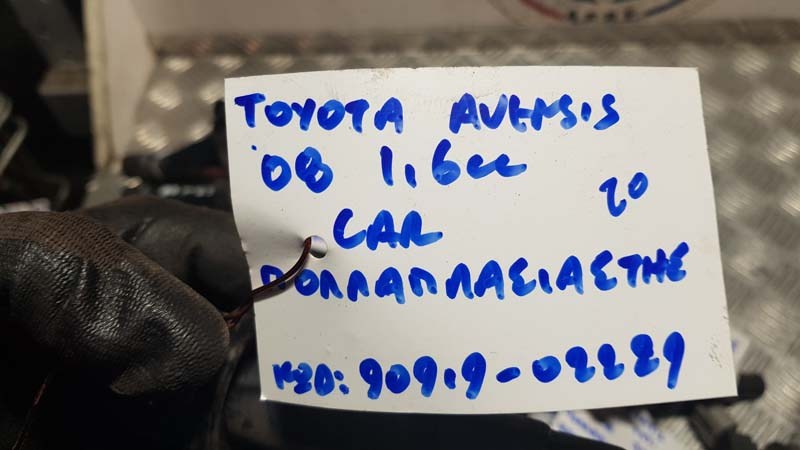 TOYOTA AVENSIS
'08 1,6cc
20
CAR
ΠΟΛΛΑΠΛΑΣΙΑΣΤΗΣ
ΚΩΔ: 90919-02229